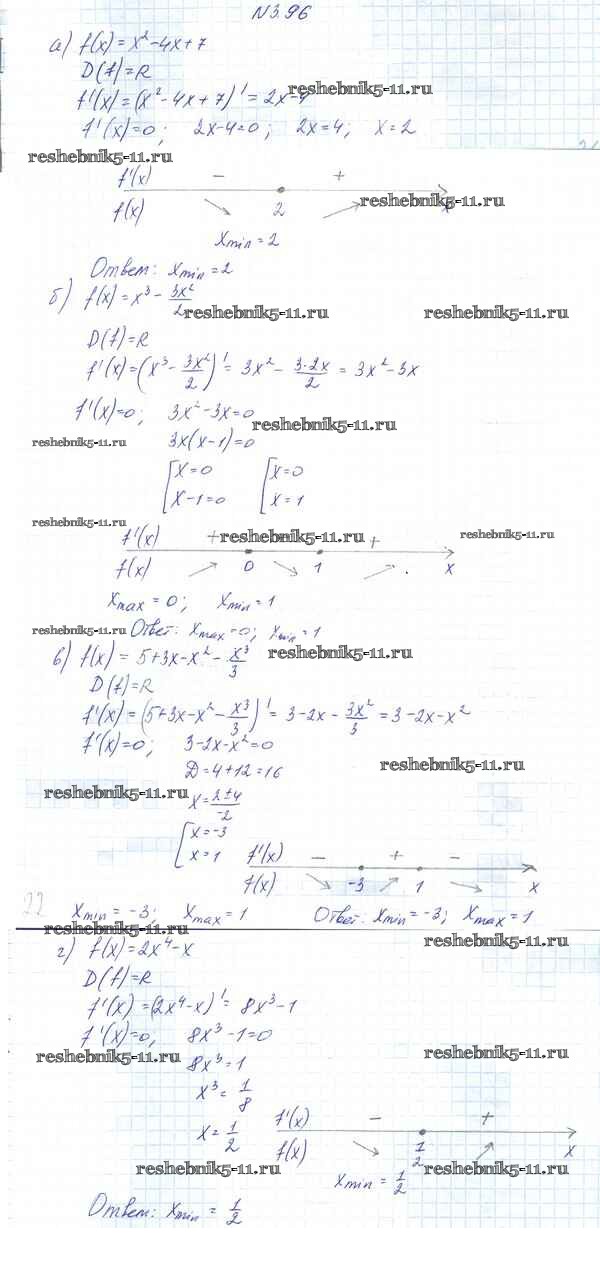 N3.96
а) f(x) = x² - 4x + 7
D(f) = R
reshebnik5-11.ru
f'(x) = (x² - 4x + 7)' = 2x - 4
f'(x) = 0; 2x - 4 = 0; 2x = 4; x = 2
reshebnik5-11.ru
f'(x) - +
reshebnik5-11.ru
f(x) ↘ 2 ↗ x
x min = 2
Ответ: x min = 2
б) f(x) = x³ - 3x²/2
reshebnik5-11.ru reshebnik5-11.ru
D(f) = R
f'(x) = (x³ - 3x²/2)' = 3x² - 3·2x/2 = 3x² - 3x
f'(x) = 0; 3x² - 3x = 0
reshebnik5-11.ru
reshebnik5-11.ru 3x(x - 1) = 0
[x = 0 [x = 0
x - 1 = 0 x = 1
reshebnik5-11.ru
f'(x) + reshebnik5-11.ru + reshebnik5-11.ru
f(x) ↗ 0 ↘ 1 ↗ x
x max = 0; x min = 1
reshebnik5-11.ru Ответ: x max = 0; x min = 1
в) f(x) = 5 + 3x - x² - x³/3 reshebnik5-11.ru
D(f) = R
f'(x) = (5 + 3x - x² - x³/3)' = 3 - 2x - 3x²/3 = 3 - 2x - x²
f'(x) = 0; 3 - 2x - x² = 0
reshebnik5-11.ru
D = 4 + 12 = 16
reshebnik5-11.ru x = 2±4/-2
[x = -3
x = 1
f'(x) - + -
f(x) ↘ -3 ↗ 1 ↘ x
22 x min = -3; x max = 1 Ответ: x min = -3; x max = 1
reshebnik5-11.ru reshebnik5-11.ru
г) f(x) = 2x⁴ - x
D(f) = R
f'(x) = (2x⁴ - x)' = 8x³ - 1
f'(x) = 0; 8x³ - 1 = 0
reshebnik5-11.ru reshebnik5-11.ru
8x³ = 1
x³ = 1/8
x = 1/2
f'(x) - +
f(x) ↘ 1/2 ↗ x
reshebnik5-11.ru reshebnik5-11.ru
x min = 1/2
Ответ: x min = 1/2